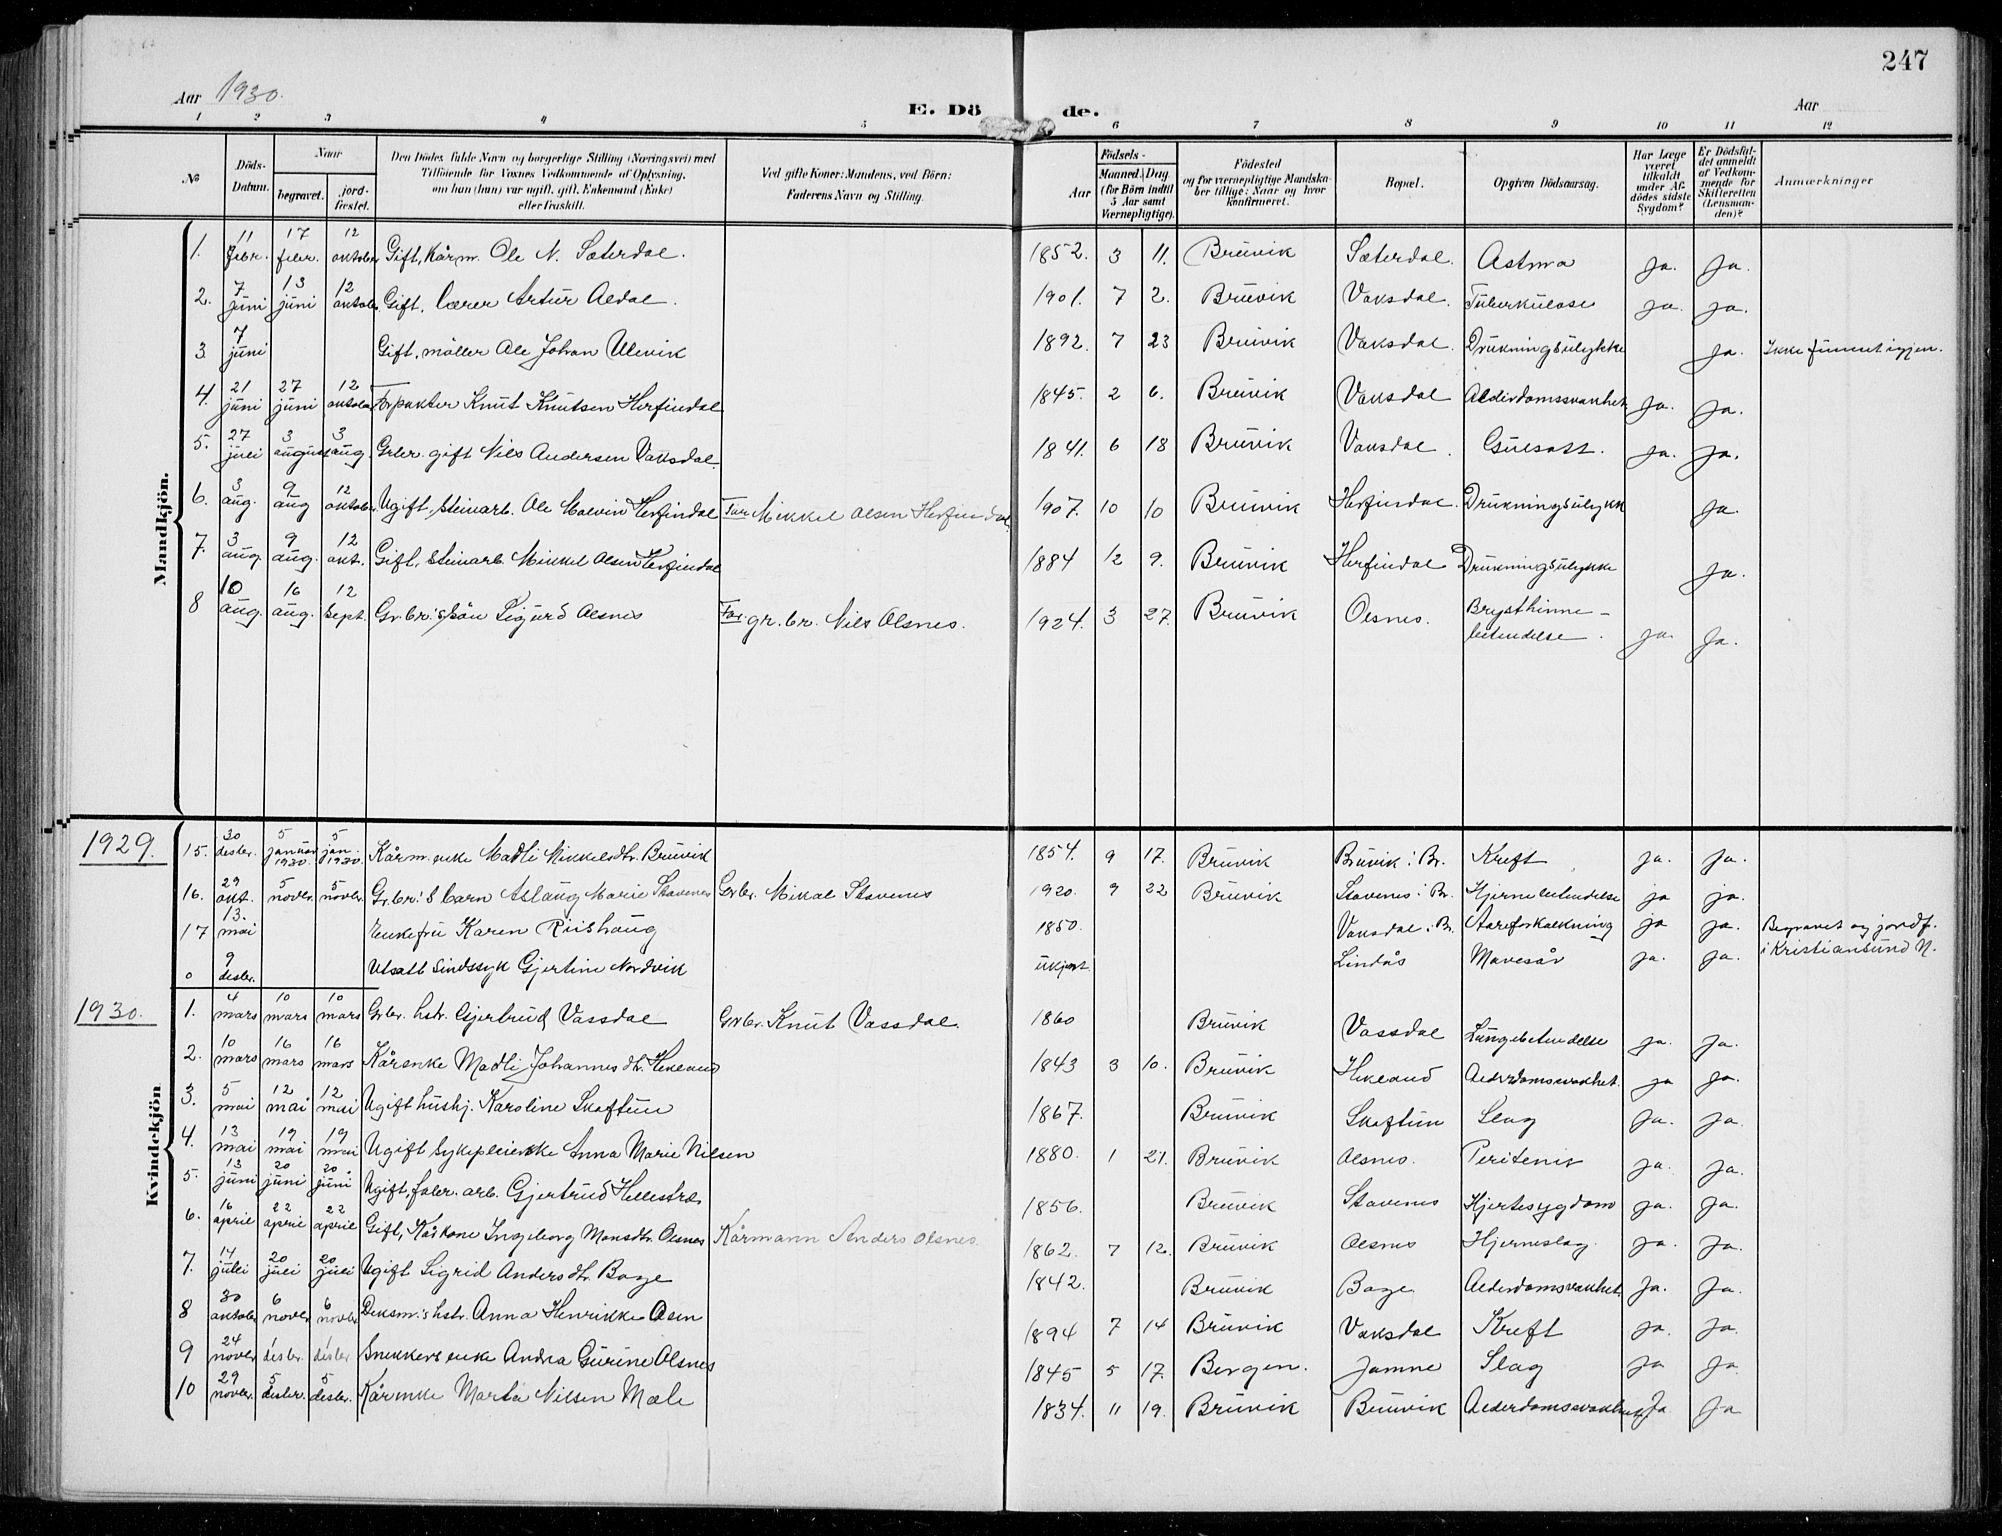 247
Aar 1930.
E. Dö de.
Aar
1 2 3 4 5 6 7 8 9 10 11 12
№
Döds-Datum.
Naar
begravet.
jord-fæstet.
Den Dödes fulde Navn og borgerlige Stilling (Næringsvei) med
Tilföiende for Voxnes Vedkommende af Oplysning,
om han (hun) var ugift, gift, Enkemand (Enke)
eller fraskilt.
Ved gifte Koner: Mandens, ved Börn:
Faderens Navn og Stilling.
Födsels-
Aar
Maaned. Dag.
(for Börn indtil
5 Aar samt
Værnepligtige).
Födested
og for værnepligtige Mandska-
ber tillige: Naar og hvor
konfirmeret.
Bopæl.
Opgiven Dödsaarsag.
Har Læge
været
tilkaldt
under Af-
dödes sidste
Sygdom?
Er Dödsfal-
det anmeldt
af Vedkom-
mende for
Skifteretten
(Lensman-
den)?
Anmærkninger
Mandkjön.
1. 11 febr. 17 febr. 12 oktober Gift, kårm. Ole N. Sæterdal. 1852. 3 11. Bruvik Sæterdal. Astma ja. ja.
2. 7 juni 13 juni 12 oktober Gift, lærer Artur Aldal. 1901. 7 2. Bruvik Vaksdal. Tuberkulose ja. ja.
3. 7 juni Gift, möller Ole Johan Ulevik 1892. 7 23 Bruvik Vaksdal. Drukningsulykke ja. Ikke funnet igjen.
4. 21 juni 27 juni 12 oktober Forpakter Knut Knutsen Herfindal 1845. 2 6. Bruvik Vaksdal Alderdomssvakhet. ja. ja.
5. 27 juli 3 august 3 aug. Grbr. gift Nils Andersen Vaksdal. 1841. 6 18 Bruvik Vaksdal. Gulsott. ja. ja.
6. 3 aug. 9 aug 12 oktober Ugift, steinarb. Ole Malvin Herfindal Far Mikkel Olsen Herfindal. 1907. 10 10 Bruvik Herfindal. Drukningsulykk ja.
7. 3 aug. 9 aug. 12 okt. Gift, steinarb. Mikkel Olsen Herfindal 1884 12 9. Bruvik Herfindal Drukningsulykke ja.
8 10 aug. 16 aug. 12 sept. Gr.br.'s sön Sigurd Olsnes Far gr.br. Nils Olsnes. 1924. 3 27. Bruvik Olsnes. Brysthinne-
betendelse. ja. ja.
Kvindekjön
1929.
15. 30 desbr. 5 januar 1930. 5 jan. 1930. Kårm. enke Madli Mikkelsdtr. Bruvik 1854. 9 17. Bruvik Bruvik i Br. Kreft ja. ja.
16. 29 okt. 5 novbr. 5 novbr. Gr.br.'s barn Aslaug Marie Stavenes Grbr. Mikal Stavenes 1920. 9 22 Bruvik Stavenes i Br. Hjernebetendelse ja ja.
17 13. mai Enkefru Karen Riishaug 1850. Vaksdal i Br. Aareforkalkning ja ja. Begravet og jordf.
i Kristiansund N.
0 9 desbr. Utsatt sindssyk Gjertine Nordvik ukjent Lindås Mavesår ja. ja.
1930.
1. 4 mars 10 mars 10 mars Grbr. hstr. Gjertrud Vassdal Grbr. Knut Vassdal. 1860 Bruvik Vassdal Lungebetendelse ja. ja.
2. 10 mars 16 mars 16 mars Kårenke Madli Johannesdtr. Hekland 1843 3 10. Bruvik Hekland Alderdomssvakhet. ja ja.
3. 5 mai 12 mai 12 mai Ugift hushj. Karoline Skaftun 1867. Bruvik Skaftun Slag ja. ja.
4. 13 mai 19 mai 19 mai Ugift sykepleierske Anna Marie Nilsen 1880. 1 21. Bruvik Olsnes. Peritenit ja. ja.
5. 13 juni 20 juni 20 juni Ugift, fabr. arb. Gjertrud Hellestræ 1856. Bruvik Stavenes Hjertesygdom ja. ja.
6. 16 april 22 april 22 april Gift, Kårkone Ingeborg Monsdtr. Olsnes Kårmann Anders Olsnes. 1862. 7 12. Bruvik Olsnes Hjerneslag ja. ja.
7. 14 juli 20 juli 20 juli Ugift Sigrid Andersdtr. Boge 1842. Bruvik Boge Alderdomsvakhet. ja. ja.
8 30 oktober 6 novbr 6 novbr Deksm.'s hstr. Anna Henrikke Olsen 1894 7 14 Bruvik Vaksdal Kreft ja. ja.
9 24 novbr 1 desbr. 1 desbr. Snekkers enke Andrea Gurine Olsnes 1845 5 17. Bergen. Jamne Slag ja ja.
10 29 novbr. 5 desbr. 5 desbr. Kårenke Marta Nilsen Mæle 1834. 11 19. Bruvik Bruvik Alderdomssvakhet Ja Ja